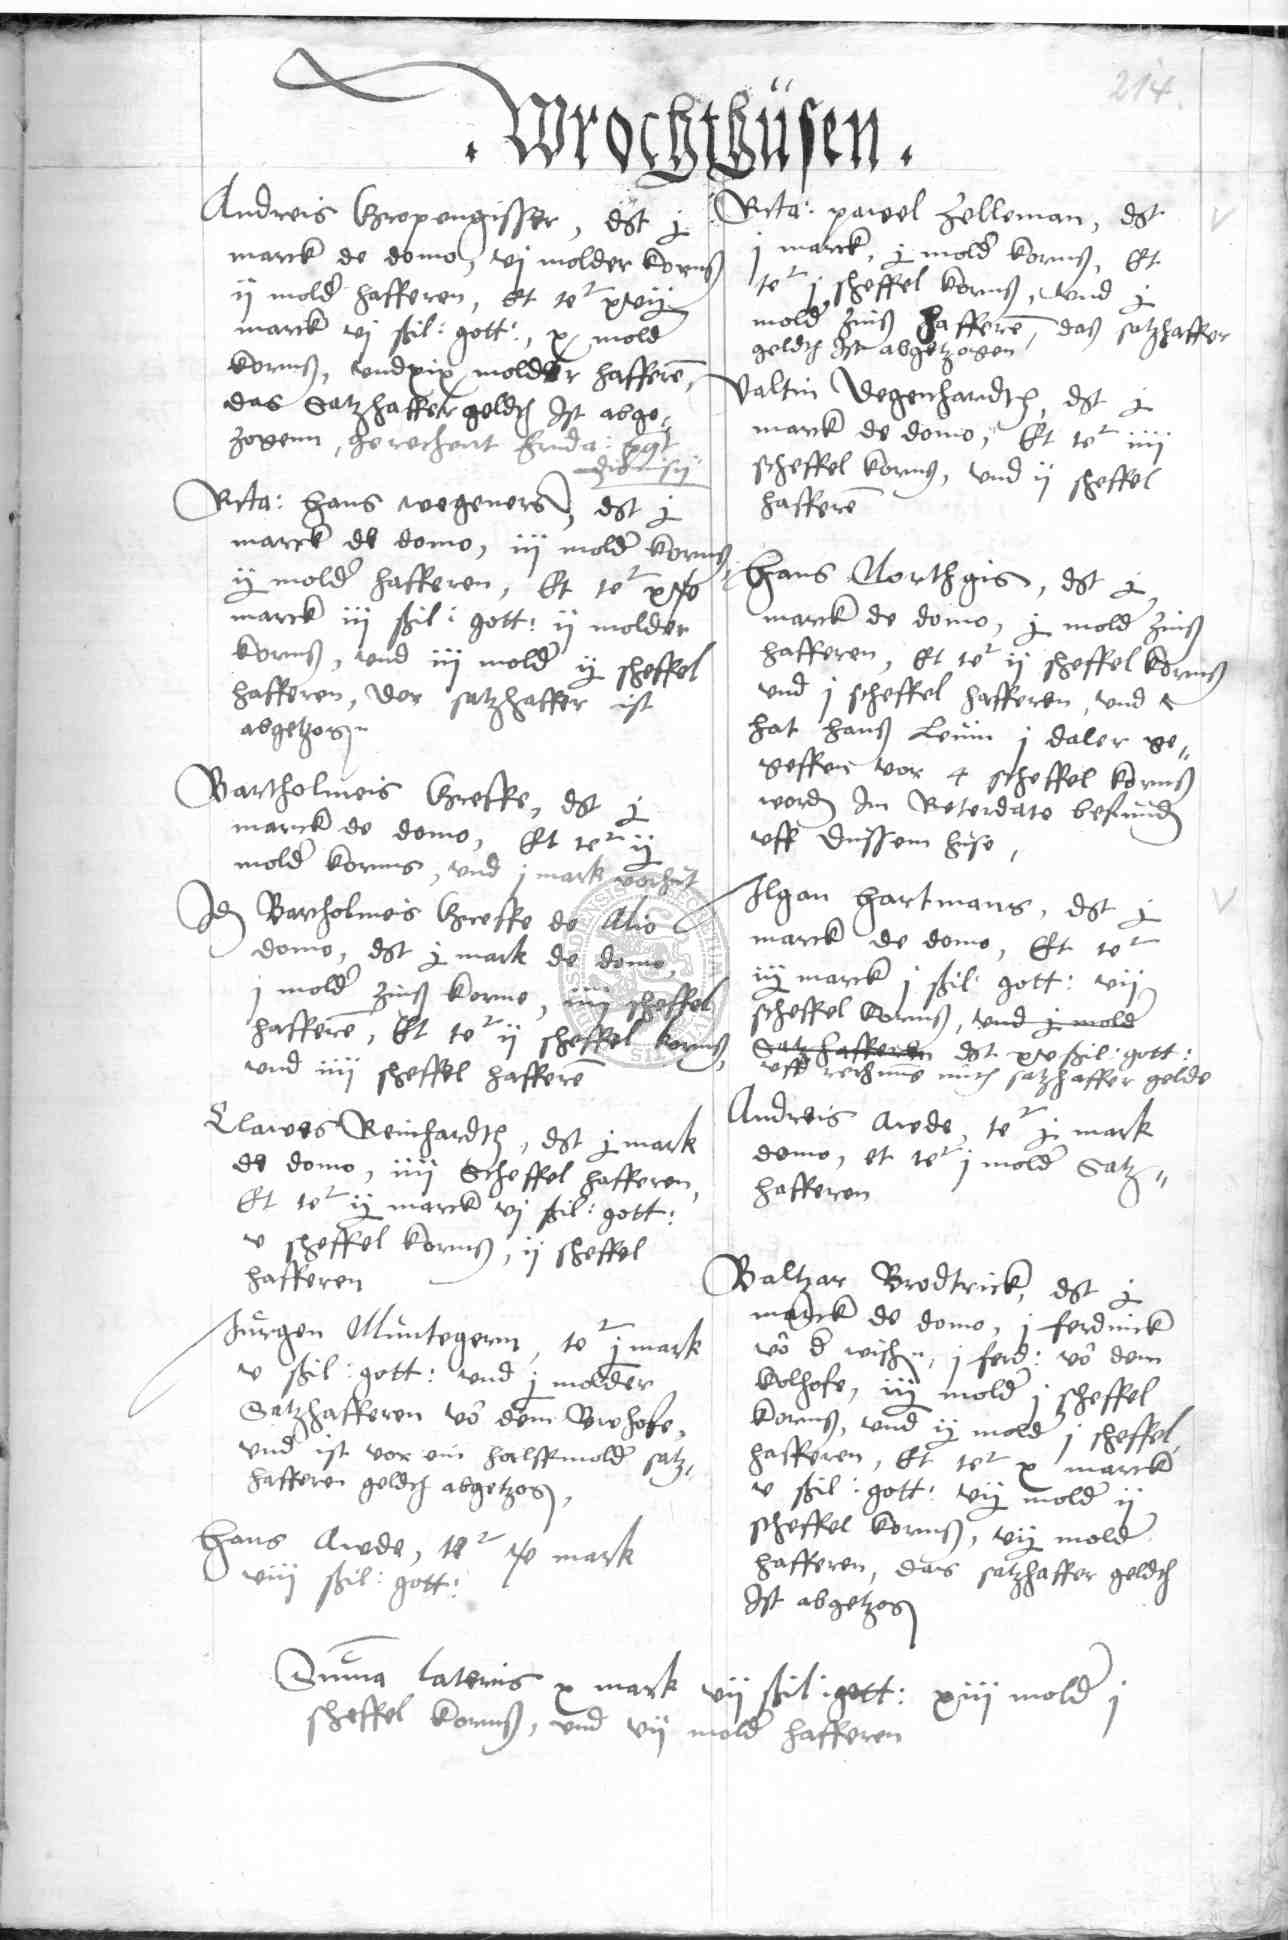 214.
. Wrochthüsen .
Andreis Gropengisser, dst j
marck de domo, vj molder korns
ij mold hafferen, Et ter xvij
marck vj ßil: gott:, x mold
korns, vnd xix molder hafferē,
das Satzhaffer geldt Ist abge„
zogenn, gerechent
dionisij
Rcta: Hans wegeners, dst j
marck de domo, iij mold korns
ij mold hafferen, Et ter
marck iij ßil: gott: ij molder
korns, vnd iij mold ij scheffel
hafferen, der satzhaffer ist
abgetzog
Bartholmeis Greffe, dst j
marck de domo, Et ter ij
mold korns, vnd j mark
Id Bartholmeis Greffe de Alio
domo, dst j mark de domo,
j mold zins korns, iiij scheffel
hafferē, Et ter ij scheffel korns,
vnd iiij scheffel hafferē
Clawes Reinhardt, dst j mark
de domo, iiij Scheffel hafferen,
Et ter ij marck vj ßil: gott:
v scheffel korns, ij scheffel
hafferen
Jürgen Müntegern, ter j mark
v ßil: gott: vnd j molder
Satzhafferen vō dem Brohofe,
vnd ist vor ein halff mold satz„
hafferen geldt abgetzog,
Hans Arede, ter mark
viij ßil: gott:
Rcta: pawel Zelleman, dst
j marck, j mold korns, Et
ter j scheffel korns, vnd j
mold zins Hafferē, das satzhaffer
geldt Ist abgetzogen
Valtin Degenhardt, dst j
marck de domo, Et ter iiij
scheffel korns, vnd ij scheffel
hafferē
Hans Northgis, dst j
marck de domo, j mold zins
hafferen, Et ter ij scheffel korns
vnd j scheffel hafferen, vnd
hat hans Leuin j daler ge„
geffen vor 4 scheffel korns
word Im Reterdate befund
vff dussem huse,
Ilgan Hartmans, dst j
marck de domo, Et ter
iij marck j ßil: gott: vij
scheffel korns, vnd j mold
Satzhafferen dst xv ßil: gott:
vff satzhaffer gelde
Andreis Arede, ter j mark
domo, et ter j mold Satz„
hafferen
Baltzar Brodtrick, dst j
marck de domo, j ferdinck
vō d wisch, j ferd: vō dem
kolhofe, iij mold j scheffel
korns, vnd ij mold j scheffel
hafferen, Et ter x marck
v ßil: gott: vij mold ij
scheffel korns, vij mold
hafferen, das satzhaffer geldt
Ist abgetzog
Suma lateris x mark vij ßil: gott: xiij mold j
scheffel korns, vnd vij mold hafferen